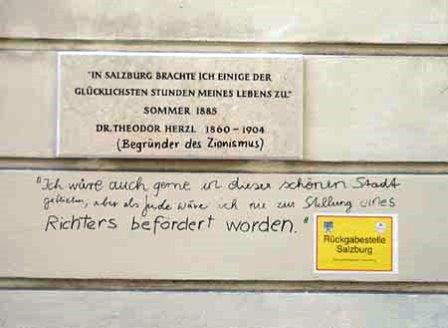 "IN SALZBURG BRACHTE ICH EINIGE DER
GLÜCKLICHSTEN STUNDEN MEINES LEBENS ZU."
SOMMER 1885
DR. THEODOR HERZL 1860 - 1904
(Begründer des Zionismus)
"Ich wäre auch gerne in dieser schönen Stadt
geblieben, aber als Jude wäre ich nie zur Stellung eines
Richters befördert worden."
Rückgabestelle
Salzburg